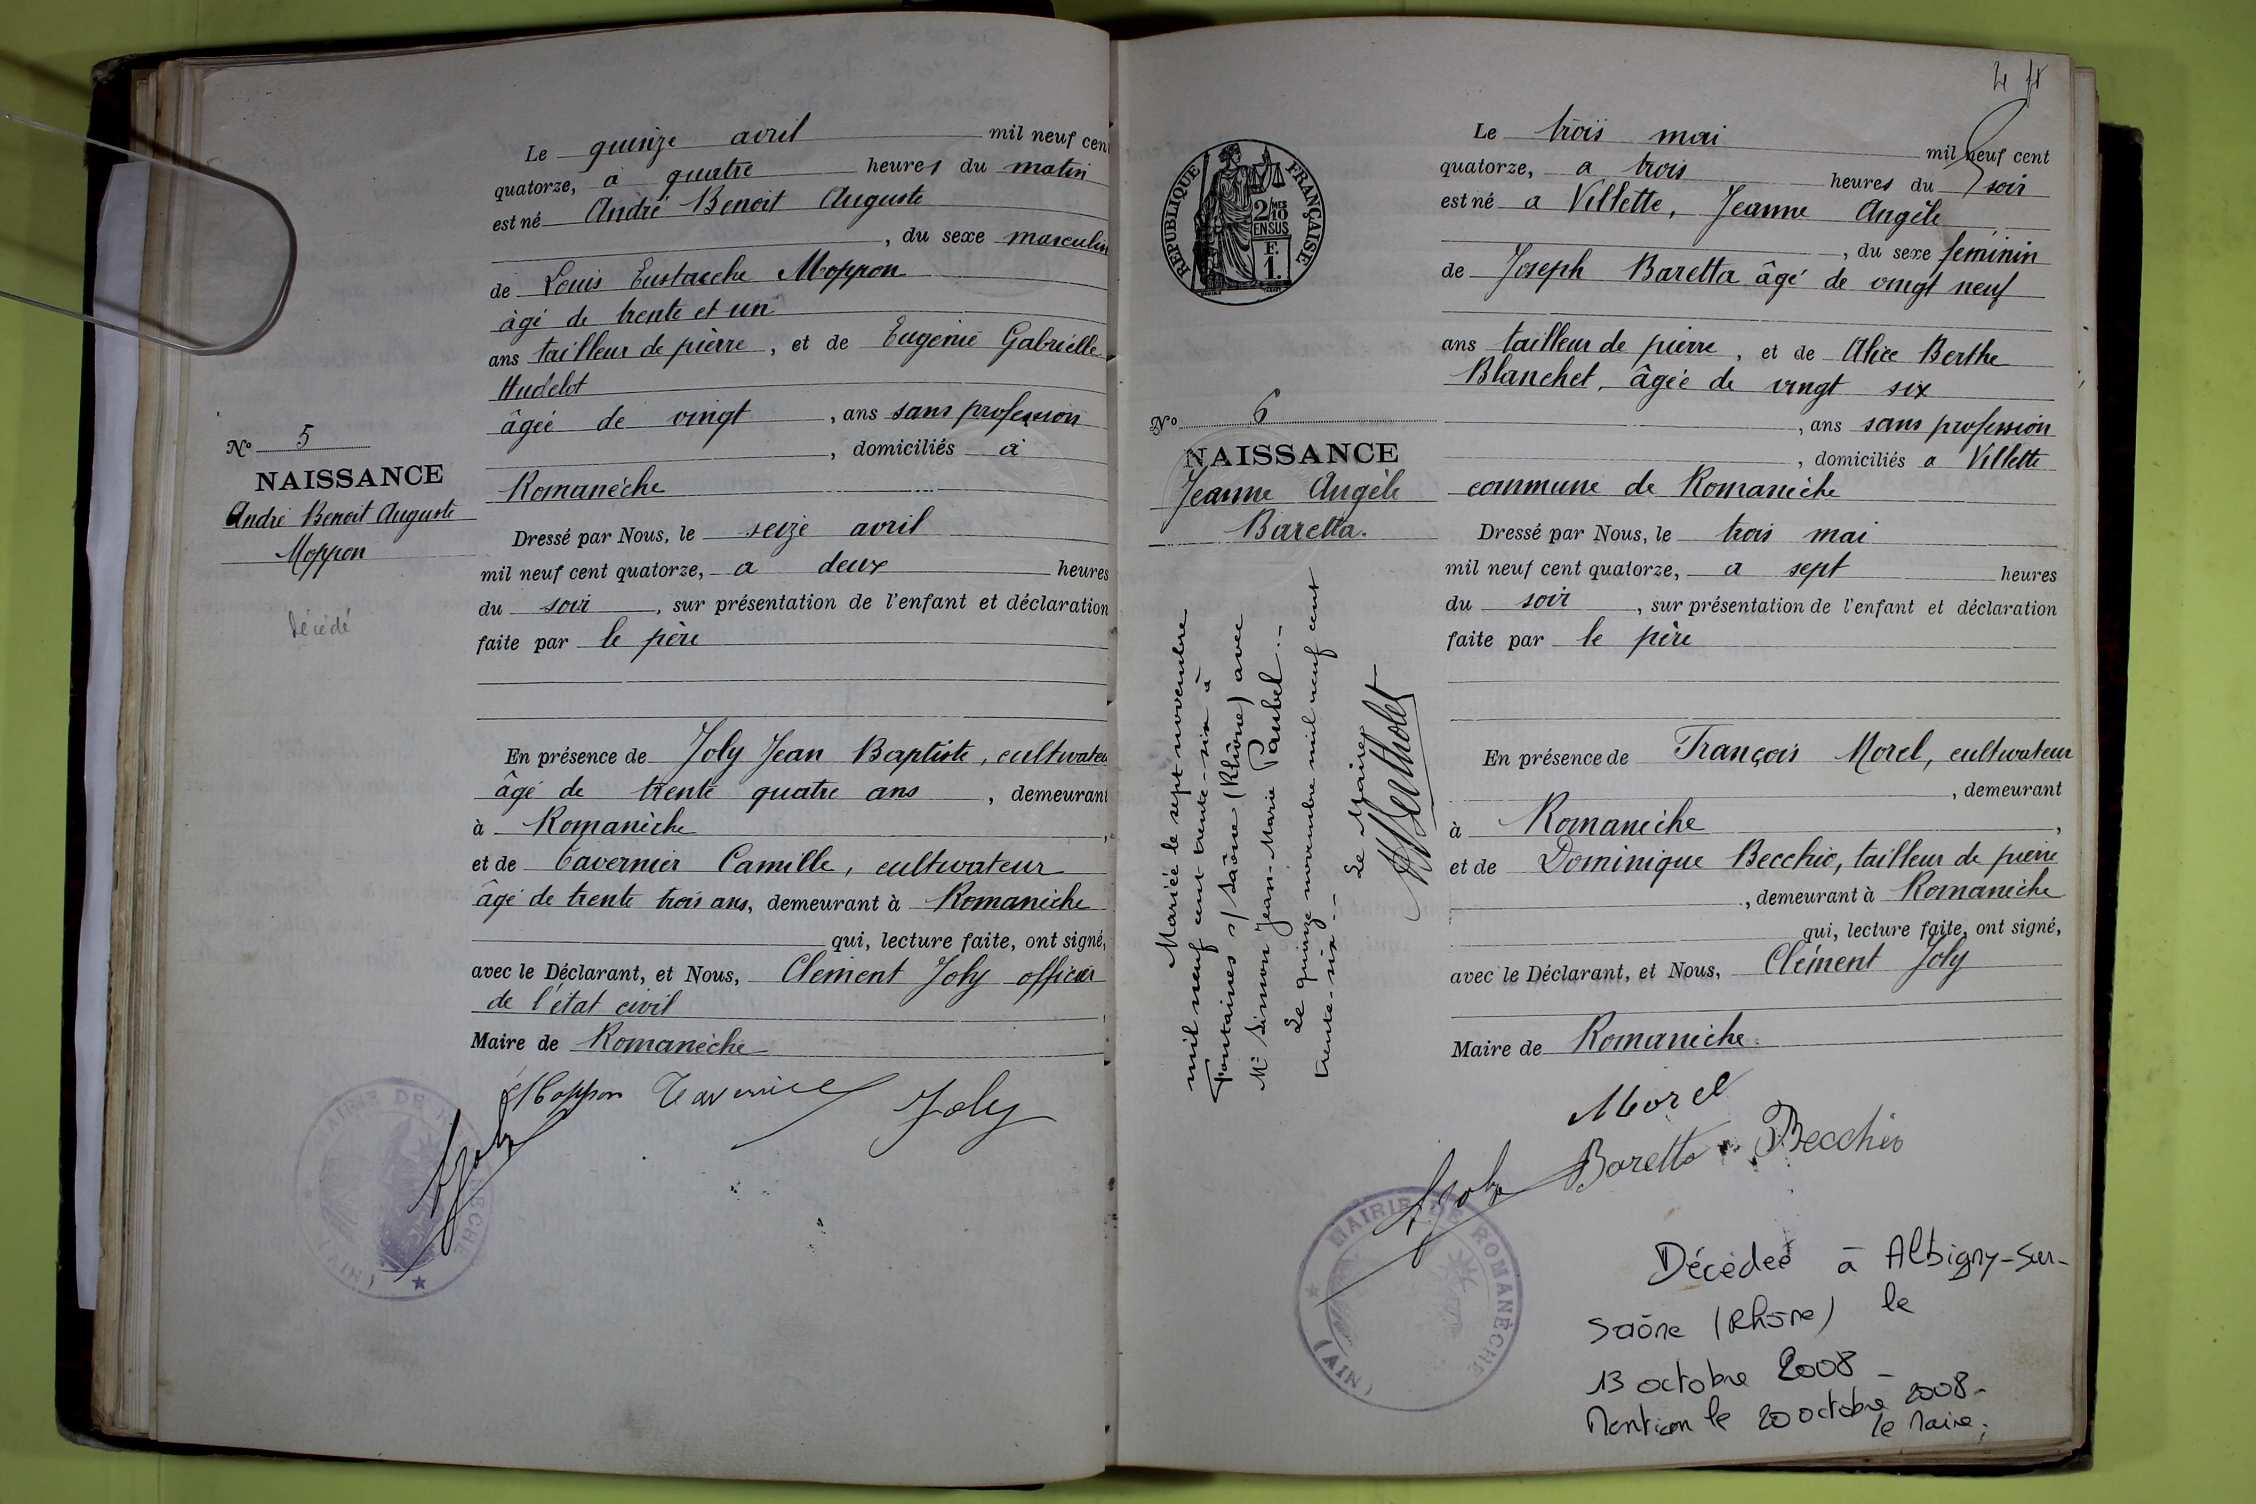 Le quinze avril mil neuf cent
quatorze, à quatre heures du matin
est né André Benoit Auguste
, du sexe masculin
de Louis Eustache Moppon
âgé de trente et un
ans tailleur de pierre, et de Eugénie Gabrielle
Hudelot
âgée de vingt, ans sans profession
, domiciliés à
Romanèche
Dressé par Nous, le seize avril
mil neuf cent quatorze, a deux heures
du soir, sur présentation de l'enfant et déclaration
faite par le père
En présence de Joly Jean Baptiste, cultivateur
âgé de trente quatre ans, demeurant
à Romanèche,
et de Tavernier Camille, cultivateur
âgé de trente trois ans, demeurant à Romanèche
qui, lecture faite, ont signé,
avec le Déclarant, et Nous, Clément Joly officier
de l'état civil
Maire de Romanèche
Moppon Tavernier Joly
Joly
No 5
NAISSANCE
André Benoit Auguste
Moppon
Décédé
MAIRIE DE ROMANÈCHE
(AIN)
4
Le trois mai mil neuf cent
quatorze, a trois heures du soir
est né a Villette, Jeanne Angèle
, du sexe féminin
de Joseph Baretta âgé de vingt neuf
ans tailleur de pierre, et de Alice Berthe
Blanchet, âgée de vingt six
, ans sans profession
, domiciliés a Villette
commune de Romanèche
Dressé par Nous, le trois mai
mil neuf cent quatorze, a sept heures
du soir, sur présentation de l'enfant et déclaration
faite par le père
En présence de François Morel, cultivateur
, demeurant
à Romanèche,
et de Dominique Becchio, tailleur de pierre
, demeurant à Romanèche
qui, lecture faite, ont signé,
avec le Déclarant, et Nous, Clément Joly
Maire de Romanèche.
Morel
Joly Baretta Becchio
RÉPUBLIQUE FRANÇAISE
2/10MES
EN SUS
F.
1.
No 6
NAISSANCE
Jeanne Angèle
Baretta.
Mariée le sept novembre
mil neuf cent trente-six à
Fontaines s/ Saône (Rhône) avec
Mr Simon Jean-Marie Paubel.-
Le quinze novembre mil neuf cent
trente-six.-
Le Maire,
Bertholet
MAIRIE DE ROMANÈCHE
(AIN)
Décédée à Albigny-Sur-
Saône (Rhône) le
13 octobre 2008-
Mention le 20 octobre 2008-
le Maire;